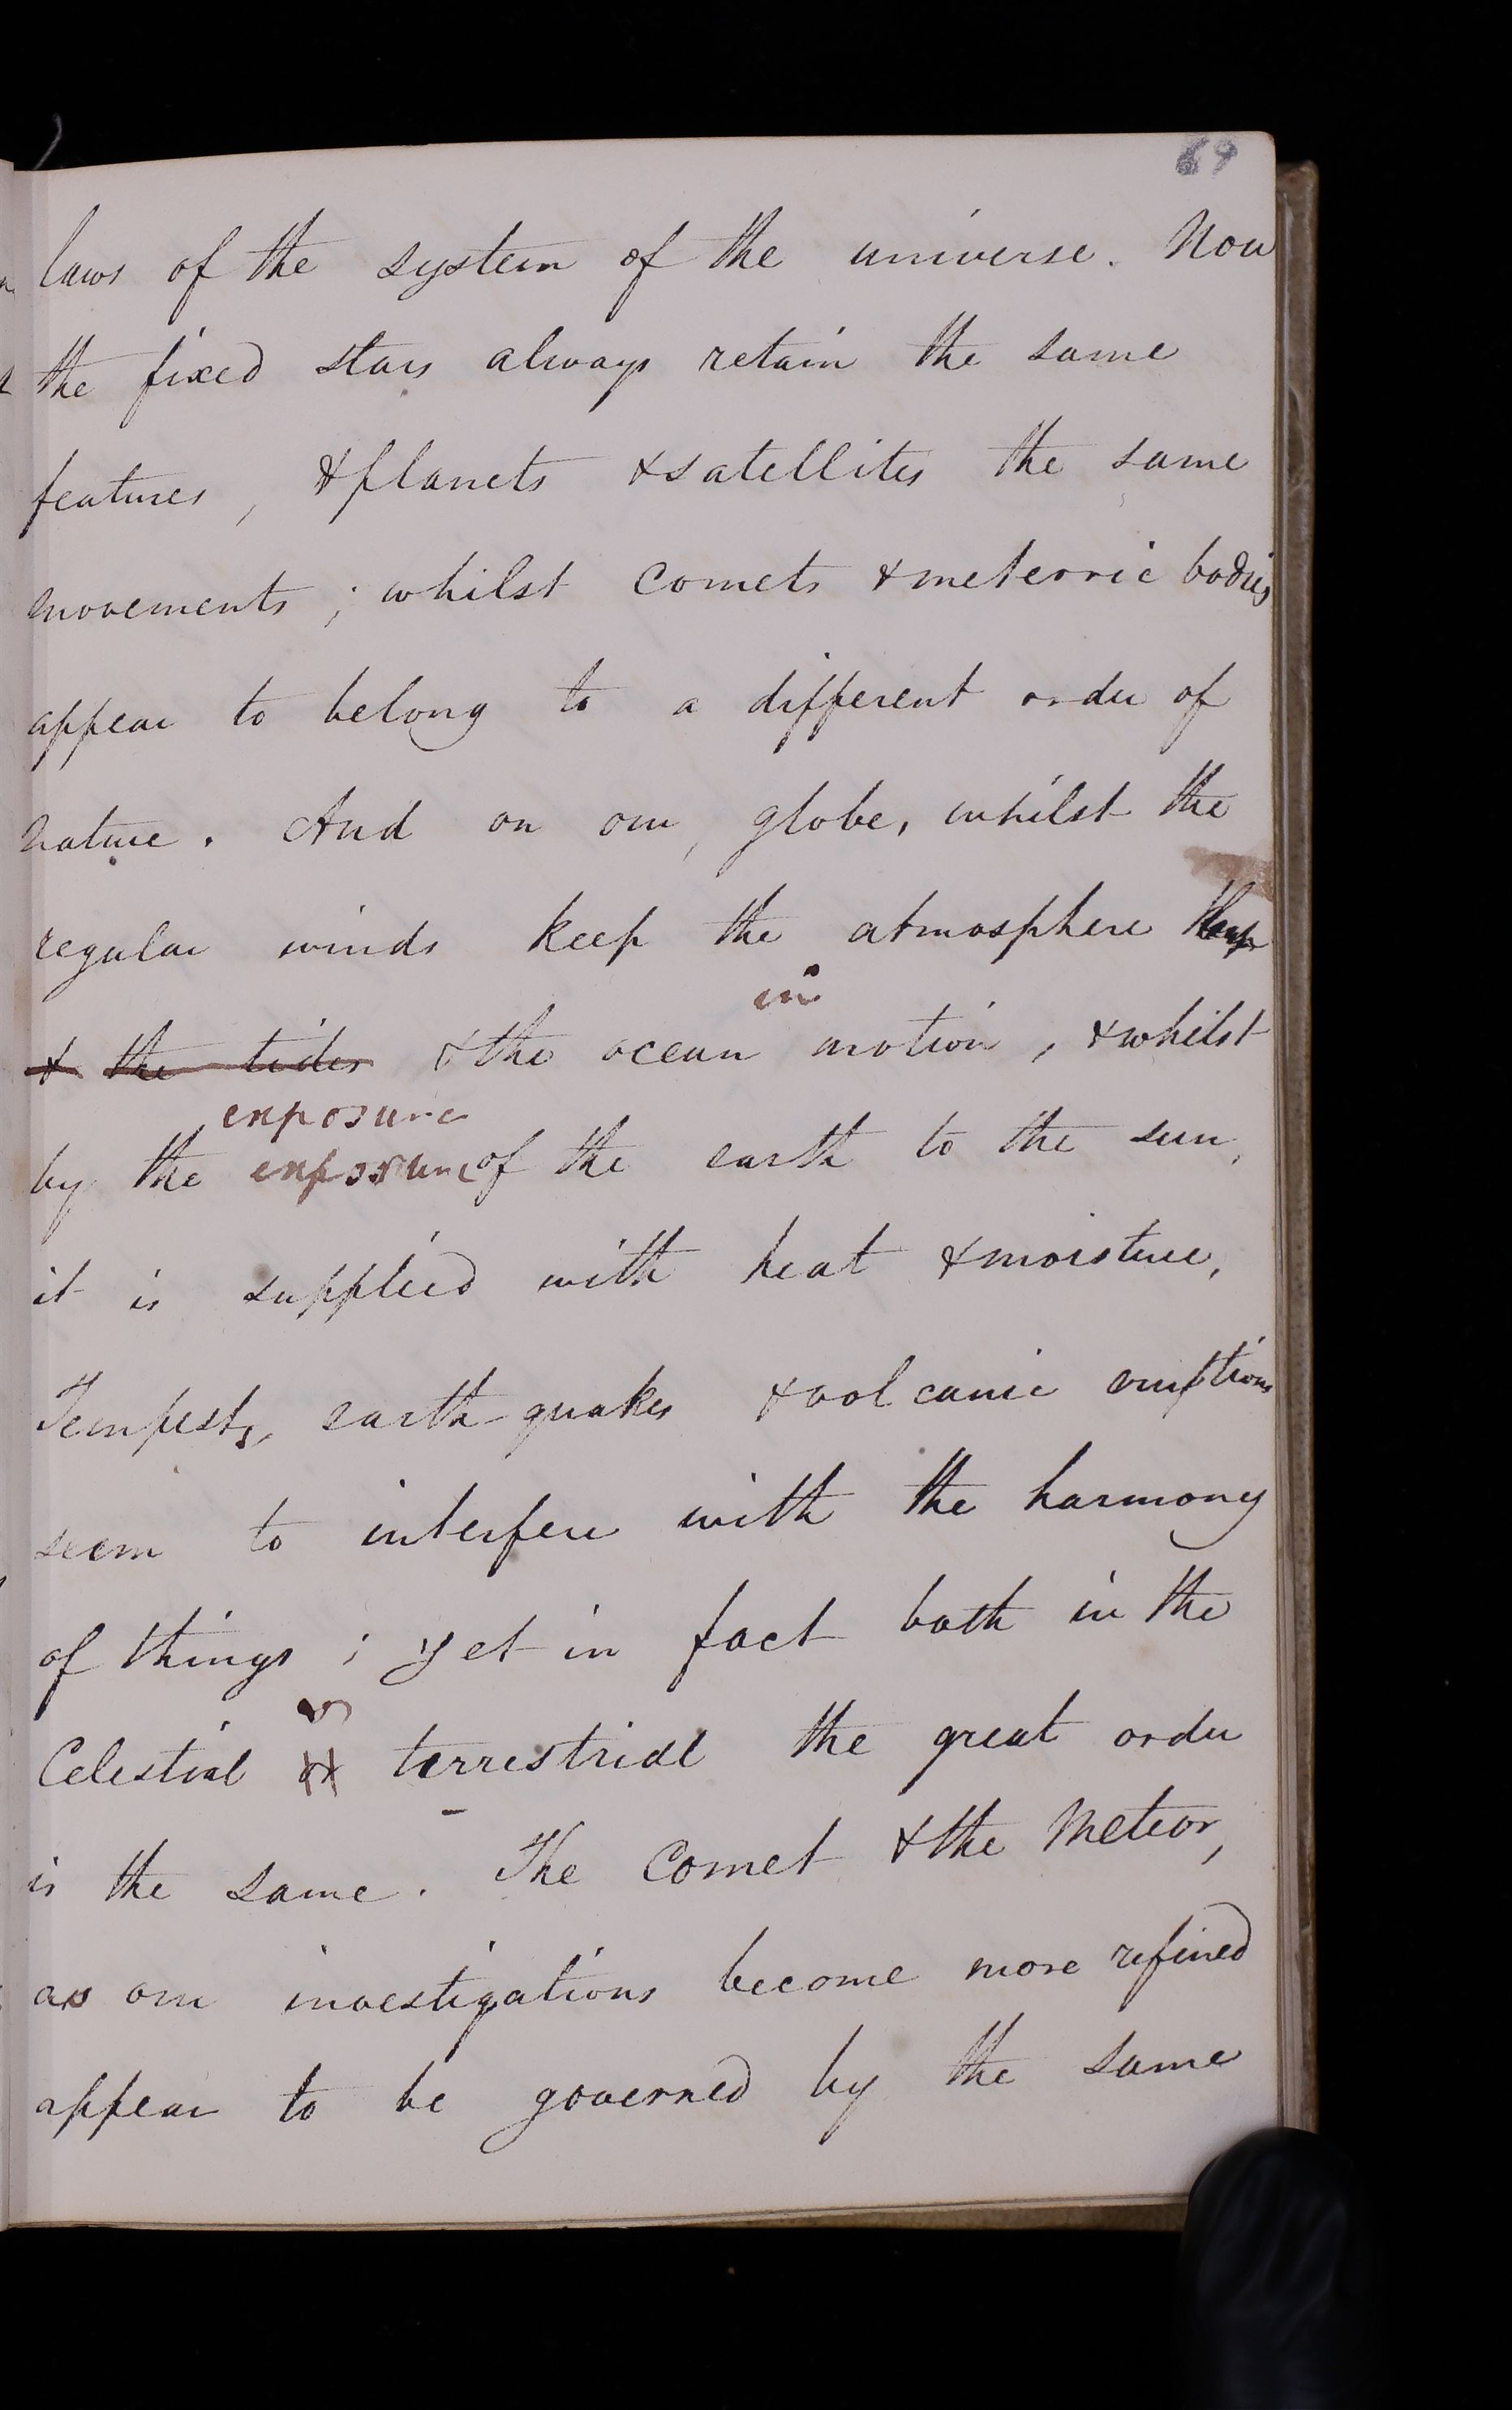 69
laws of the system of the universe. Now
the fixed stars always retain the same
features, & planets & satellites the same
movements; whilst comets & meterric bodies
appear to belong to a different order of
nature. And on our globe, whilst the
regular winds keep the atmosphere
in
& the tides & the ocean motion, & whilst
exposure
by the exposure of the earth to the sun,
it is supplied with heat & moisture,
Tempests, earth-quakes & volcanic eruptions
seem to interfere with the harmony
of things; yet in fact both in the
Celestial & terrestrial the great order
is the same. The Comet & the Meteor,
as our investigations become more refined
appear to be governed by the same